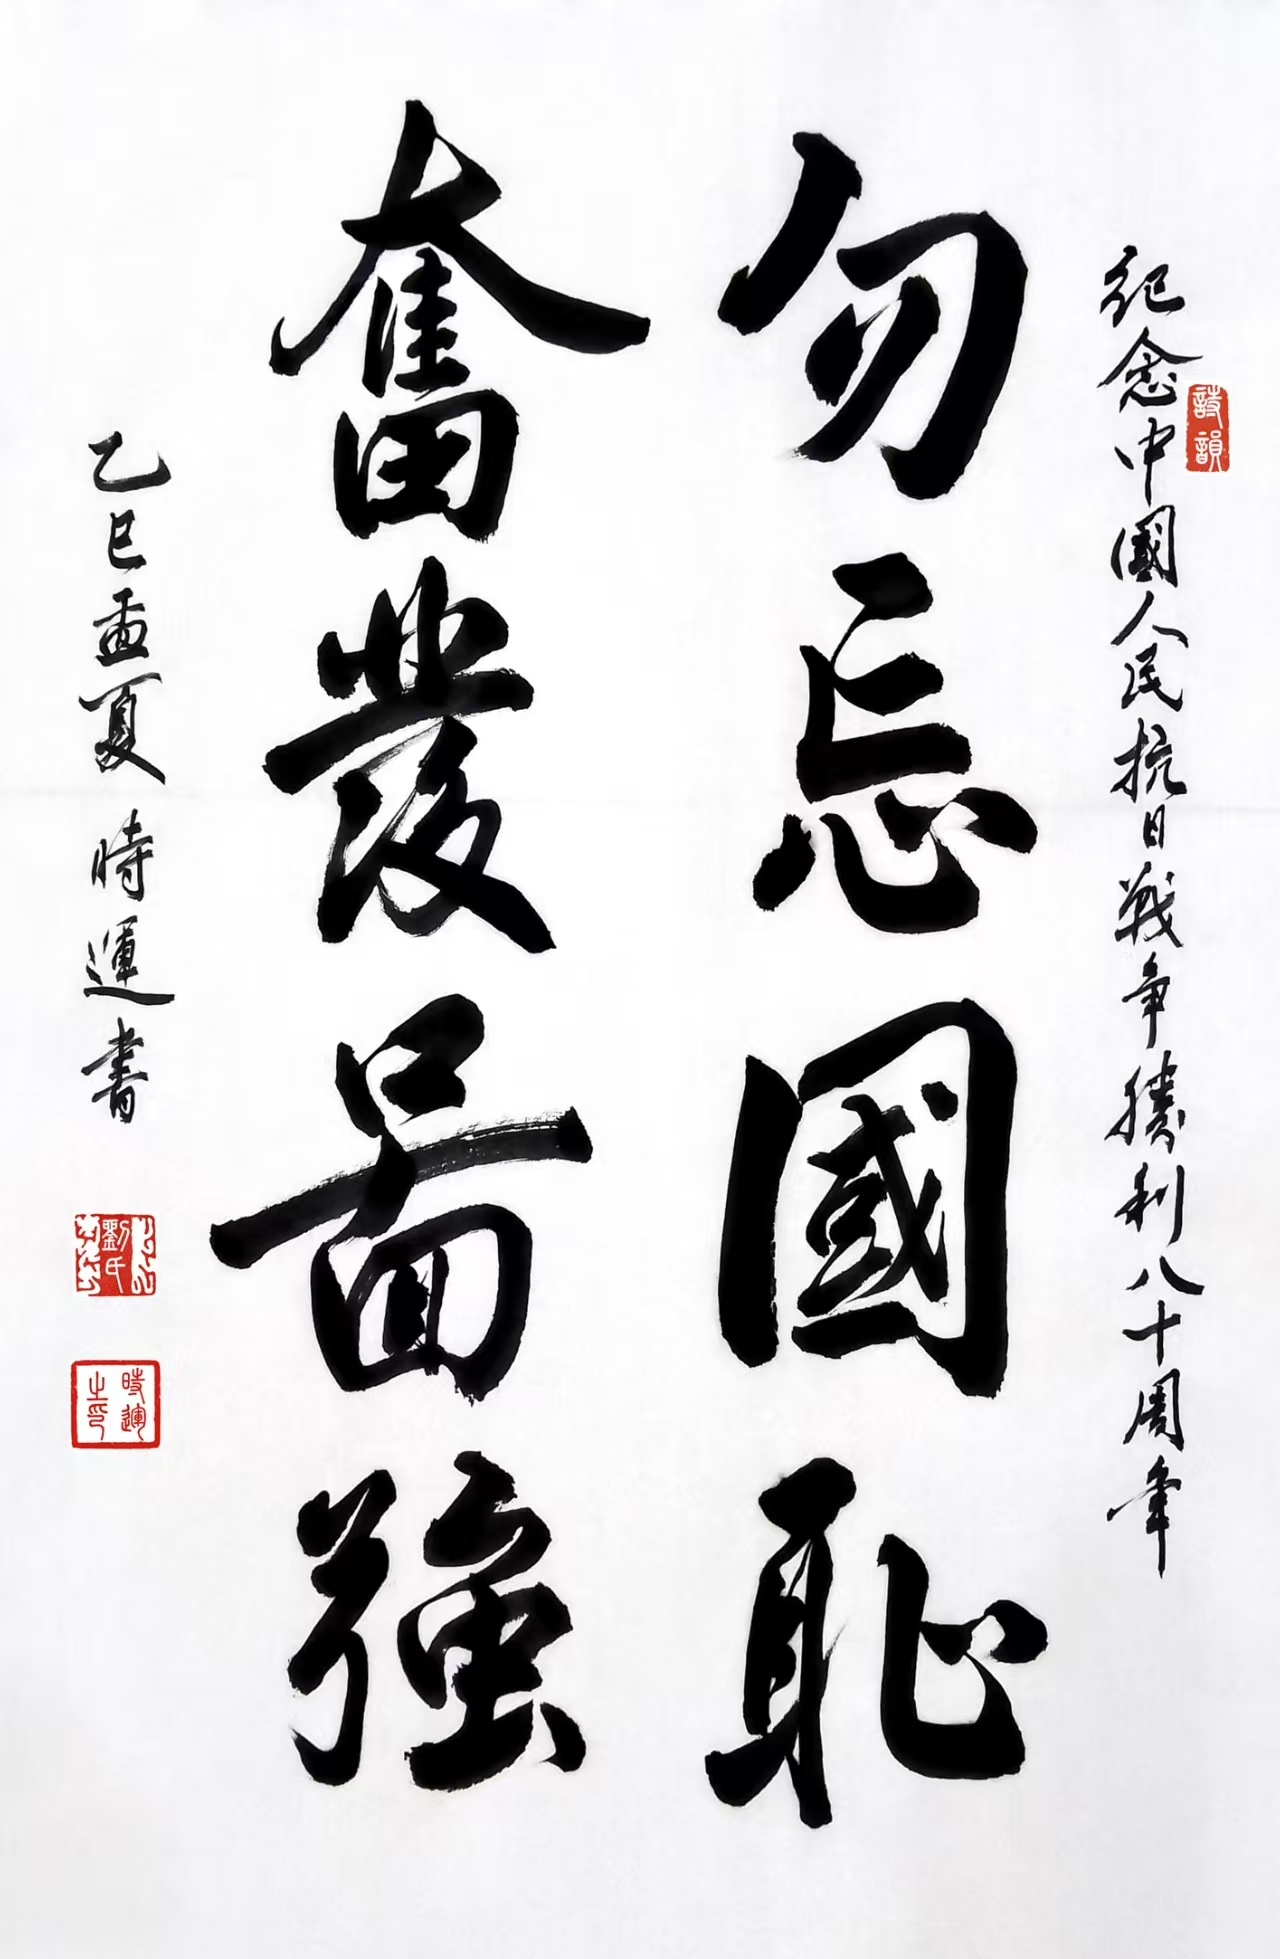 紀念中國人民抗日戰争勝利八十周年
詩韻
勿忘國恥
奮發圖強
乙巳孟夏時運書
劉氏
時運之印